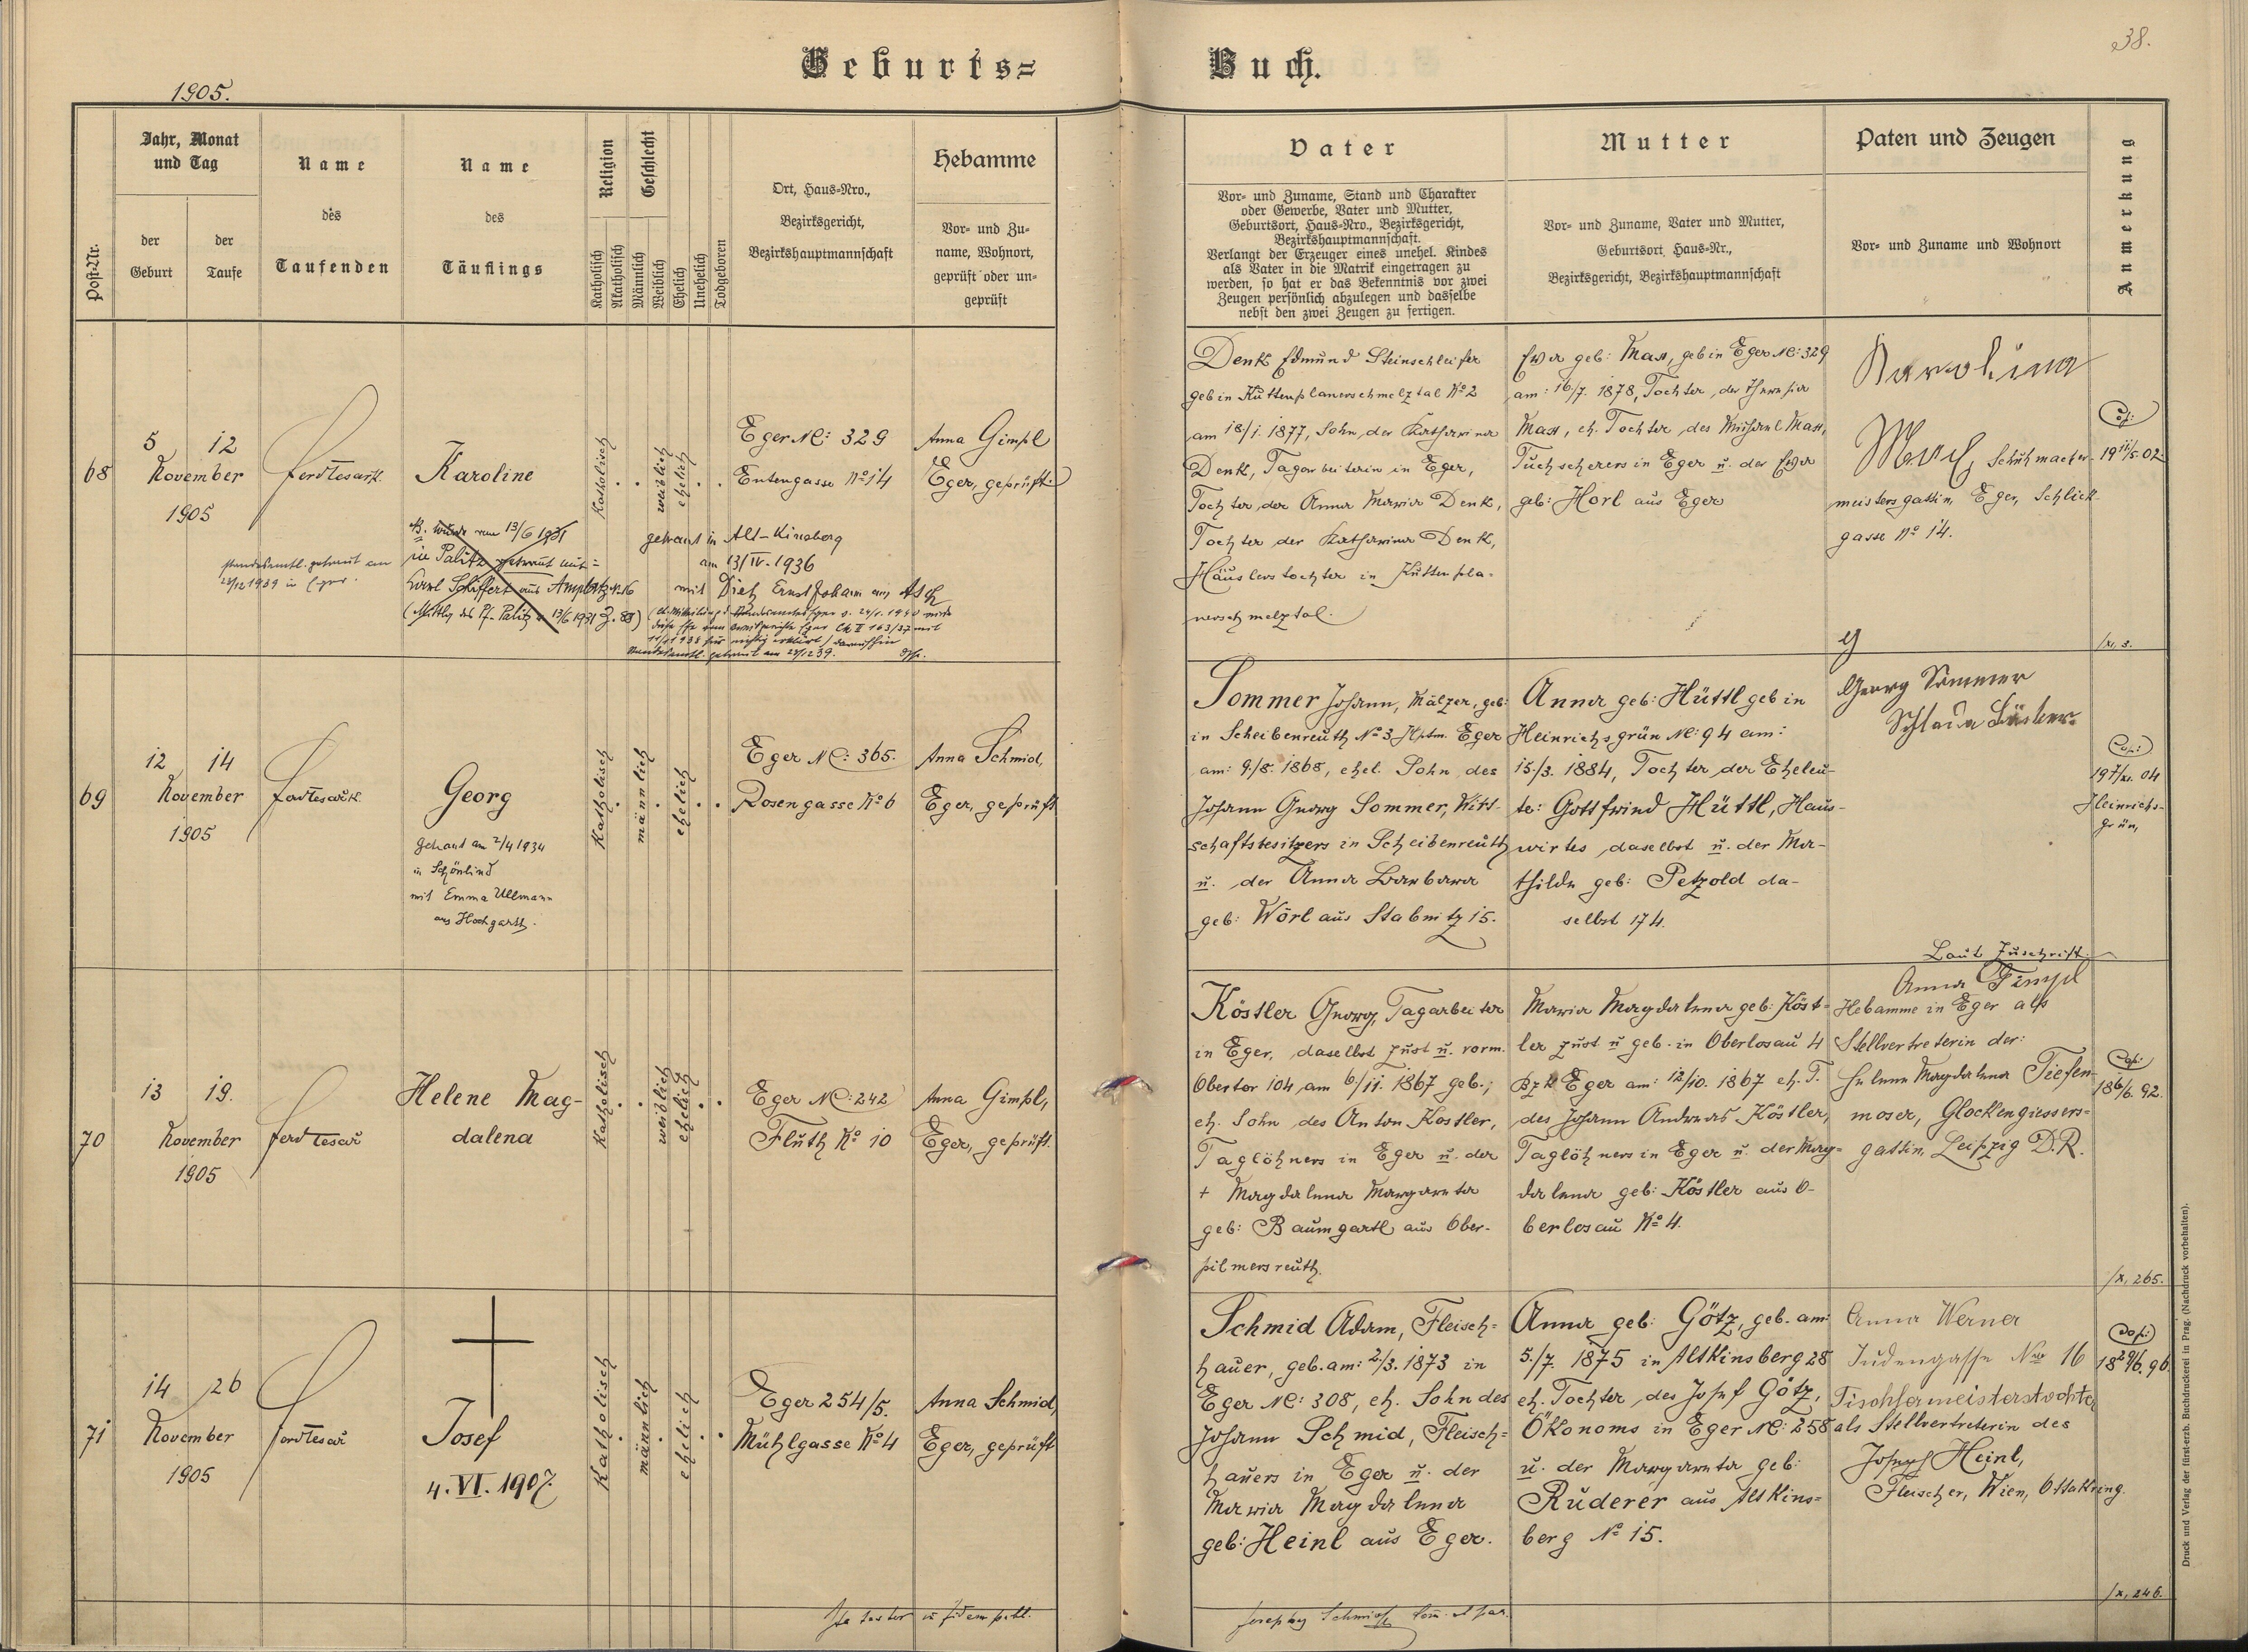 38.
Geburts=
Buch.
1905.
Post-Nr.
Jahr, Monat
und Tag
der
Geburt
der
Taufe
Name
des
Taufenden
Name
des
Täuflings
Religion
Katholisch
Akatholisch
Geschlecht
Männlich
Weiblich
Ehelich
Unehelich
Todgeboren
Ort, Haus=Nro.,
Bezirksgericht,
Bezirkshauptmannschaft
Hebamme
Vor= und Zu=
name, Wohnort,
geprüft oder un=
geprüft
Vater
Vor= und Zuname, Stand und Charakter
oder Gewerbe, Vater und Mutter,
Geburtsort, Haus=Nro., Bezirksgericht,
Bezirkshauptmannschaft.
Verlangt der Erzeuger eines unehel. Kindes
als Vater in die Matrik eingetragen zu
werden, so hat er das Bekenntnis vor zwei
Zeugen persönlich abzulegen und dasselbe
nebst den zwei Zeugen zu fertigen.
Mutter
Vor= und Zuname, Vater und Mutter,
Geburtsort Haus=Nr.,
Bezirksgericht, Bezirkshauptmannschaft
Paten und Zeugen
Vor= und Zuname und Wohnort
Anmerkung
68
5 12
November
1905
Karoline
NB. wurde am 13/6 1931
in Palitz getraut mit=
Karl Schiffert aus
standesamtl. getraut am
28/12 1939 in Eger.
Katholisch
weiblich
ehelich
Eger NC: 329
Entengasse No 14
getraut in Alt-Kinsberg
am 13/IV. 1936
mit Dietz Ernst Johann aus Asch
Anna Gimpl
Eger, geprüft.
Denk Edmund Steinschleifer
geb in Kuttenplanerschmelztal No 2
am 18/1. 1877, Sohn der Katharina
Denk, Tagarbeiterin in Eger,
Tochter der Anna Maria Denk,
Tochter der Katharina Denk,
Häuslerstochter in Kuttenpla-
nerschmelztal.
Eva geb: Mass, geb in Eger NC: 329
am: 16/7. 1878, Tochter der Theresia
Mass, eh. Tochter des Michael Mass,
Tuchscherers in Eger u. der Eva
geb: Horl aus Eger
Karolina
Schuhmacher-
meistersgattin, Eger, Schick-
gasse No 14.
Cop:
19 11/5. 02
69
12 14
November
1905
Georg
Getraut am 2/4 1934
in Schönlind
mit Emma Ullmann
aus Hochgarth.
Katholisch
männlich
ehelich
Eger NC: 365.
Rosengasse No 6
Anna Schmid,
Eger, geprüft
Sommer Johann, Mälzer, geb:
in Scheibenreuth No 3 Hptm. Eger
am: 9/8. 1868, ehel. Sohn des
Johann Georg Sommer, Wirt-
schaftsbesitzers in Scheibenreuth
u. der Anna Barbara
geb: Wörl aus Stabnitz 15.
Anna geb: Hüttl geb in
Heinrichsgrün NC: 94 am:
15/3. 1884, Tochter der Eheleu-
te: Gottfried Hüttl, Haus-
wirtes daselbst u. der Ma-
thilde geb: Petzold da-
selbst 174.
Georg Sommer
Cop:
19 7/XI. 04
Heinrichs-
grün,
70
13 19.
November
1905
Helene Mag-
dalena
Katholisch
weiblich
ehelich
Eger NC: 242
Fluth No 10
Anna Gimpl,
Eger, geprüft.
Köstler Georg, Tagarbeiter
in Eger, daselbst zust u. vorm.
Obertor 104 am 6/11. 1867 geb.;
eh. Sohn des Anton Köstler,
Taglöhners in Eger u. der
+ Magdalena Margareta
geb: Baumgartl aus Ober-
pilmersreuth.
Maria Magdalena geb: Köst-
ler zust u geb. in Oberlosau 4
Bzk Eger am: 12/10. 1867 eh. T.
des Johann Andreas Köstler,
Taglöhners in Eger u. der Mag-
dalena geb: Köstler aus O-
berlosau No 4.
Laut Zuschrift.
Anna Gimpl
Hebamme in Eger als
Stellvertreterin der:
Helene Magdalena Tiefen-
moser, Glockengiessers-
gattin, Leipzig D.R.
Cop:
18 6/6. 92.
/X, 265.
71
14 26
November
1905
Josef
4. VI. 1907.
Katholisch
männlich
ehelich
Eger 254/5.
Mühlgasse No 4
Anna Schmid,
Eger, geprüft
Schmid Adam, Fleisch-
hauer, geb. am: 2/3. 1873 in
Eger NC: 308, eh. Sohn des
Johann Schmid, Fleisch-
hauers in Eger u. der
Maria Magdalena
geb: Heinl aus Eger.
Anna geb: Götz, geb. am:
5./7. 1875 in Altkinsberg 28
eh. Tochter, des Josef Götz,
Ökonoms in Eger NC: 258
u. der Margareta geb:
Ruderer aus Altkins=
berg No 15.
Anna Werner
Judengasse Nro 16
Tischlermeisterstochter
als Stellvertreterin des
Joseph Heinl,
Fleischer, Wien, Ottakring.
Cop:
/X, 246.
Druck und Verlag der fürst-erzb. Buchdruckerei in Prag. (Nachdruck vorbehalten).